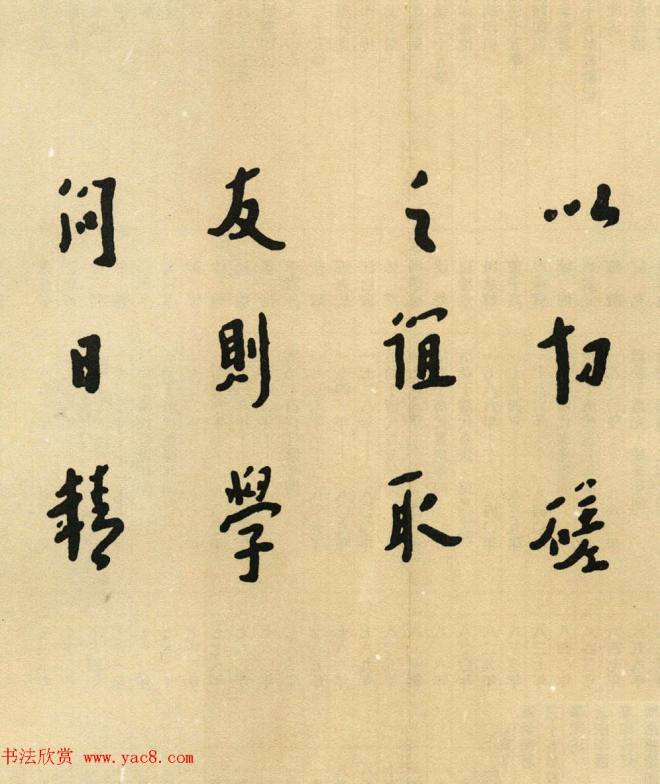 以切磋
之誼取
友則學
問日精
书法欣赏 www.yac8.com